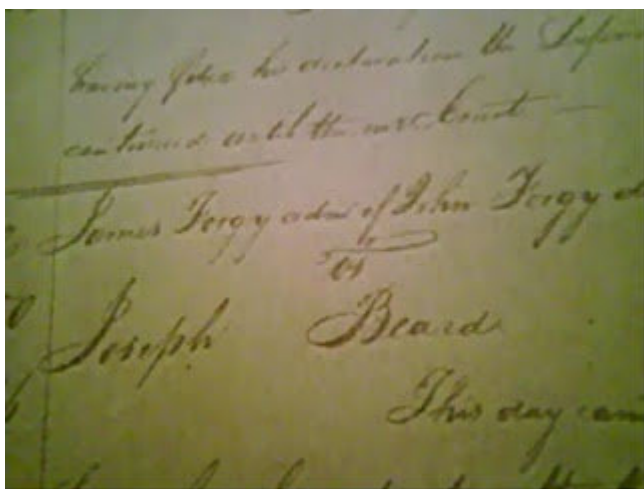 having filed his declaration the
continued until the next Court
James Forgy adm of John Forgy
vs
Joseph Beard
This day cam